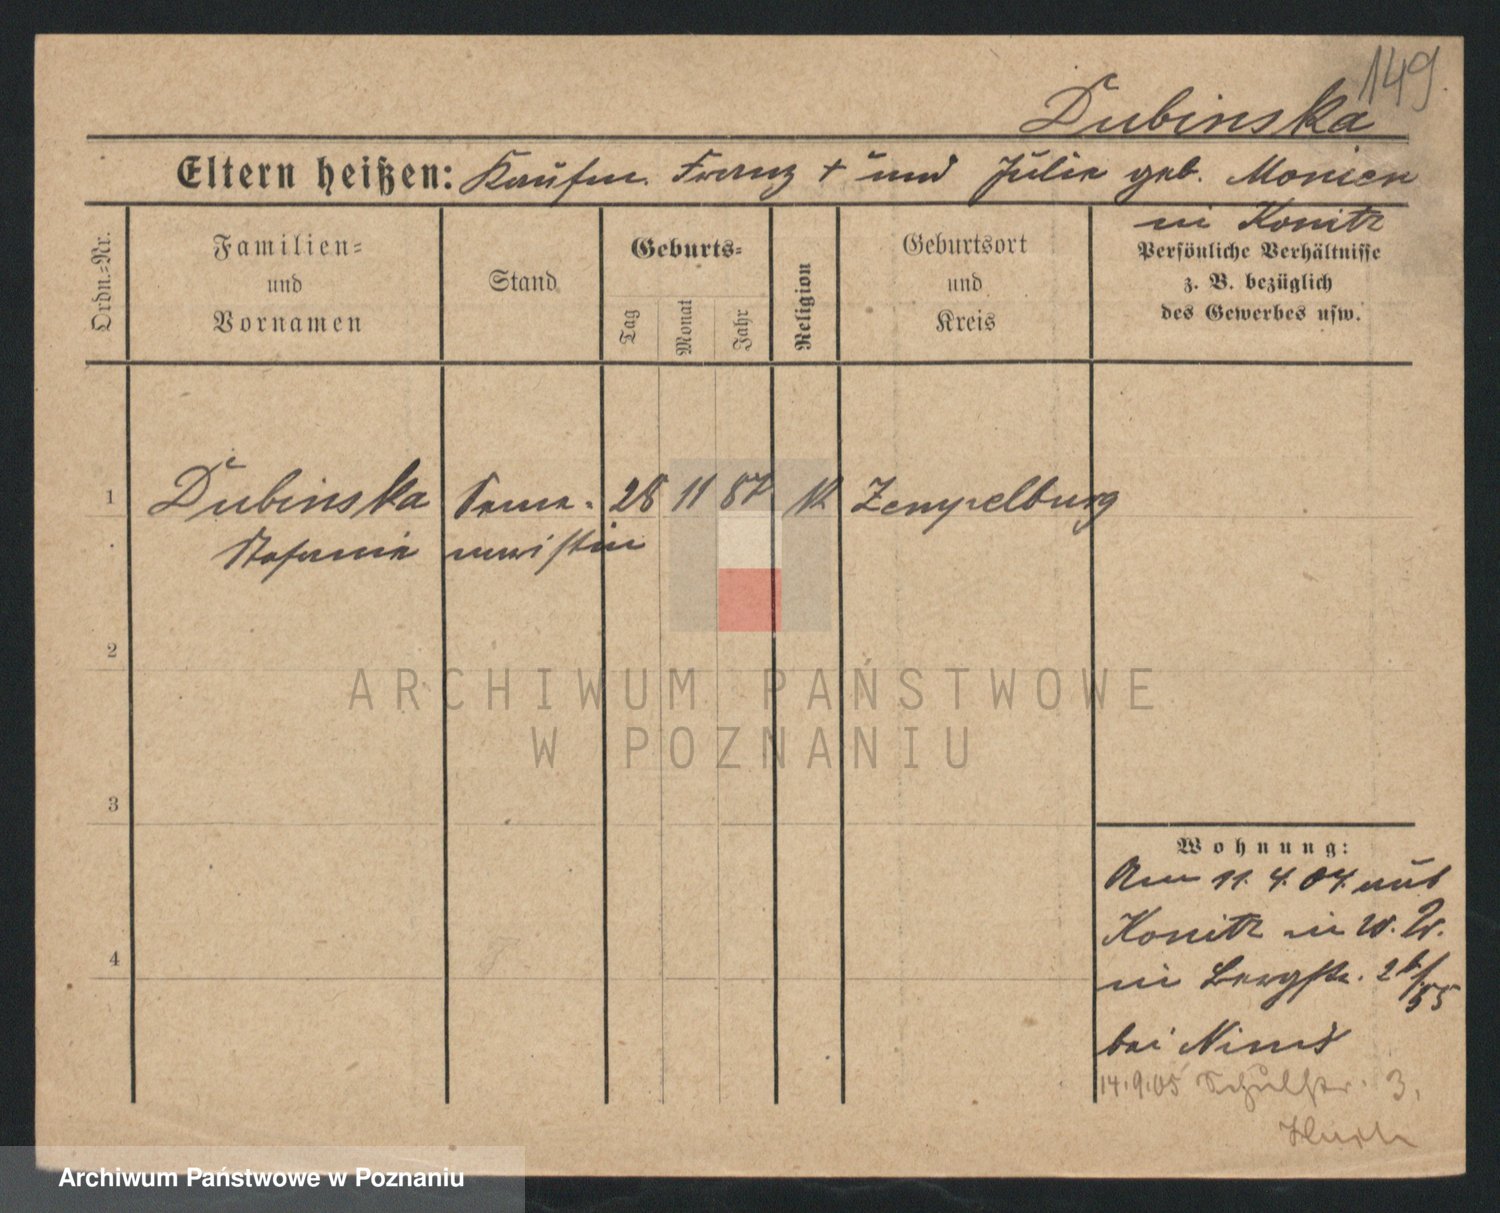 149.
Dubinska
Eltern heißen: Kaufm. Franz + und Julie geb. Monien
in Konitz
Ordn.=Nr.
Familien=
und
Vornamen
Stand
Geburts=
Tag
Monat
Jahr
Religion
Geburtsort
und
Kreis
Persönliche Verhältnisse
z. B. bezüglich
des Gewerbes usw.
1 Dubinska 28 11 87 k Zempelburg
Stefanie
2
3
4
ARCHIWUM PAŃSTWOWE
W POZNANIU
Wohnung:
11. 4. 04. aus
Konitz in W. Pr.
in Bergstr.
bei
14.9.05 Schulstr. 3.
Archiwum Państwowe w Poznaniu